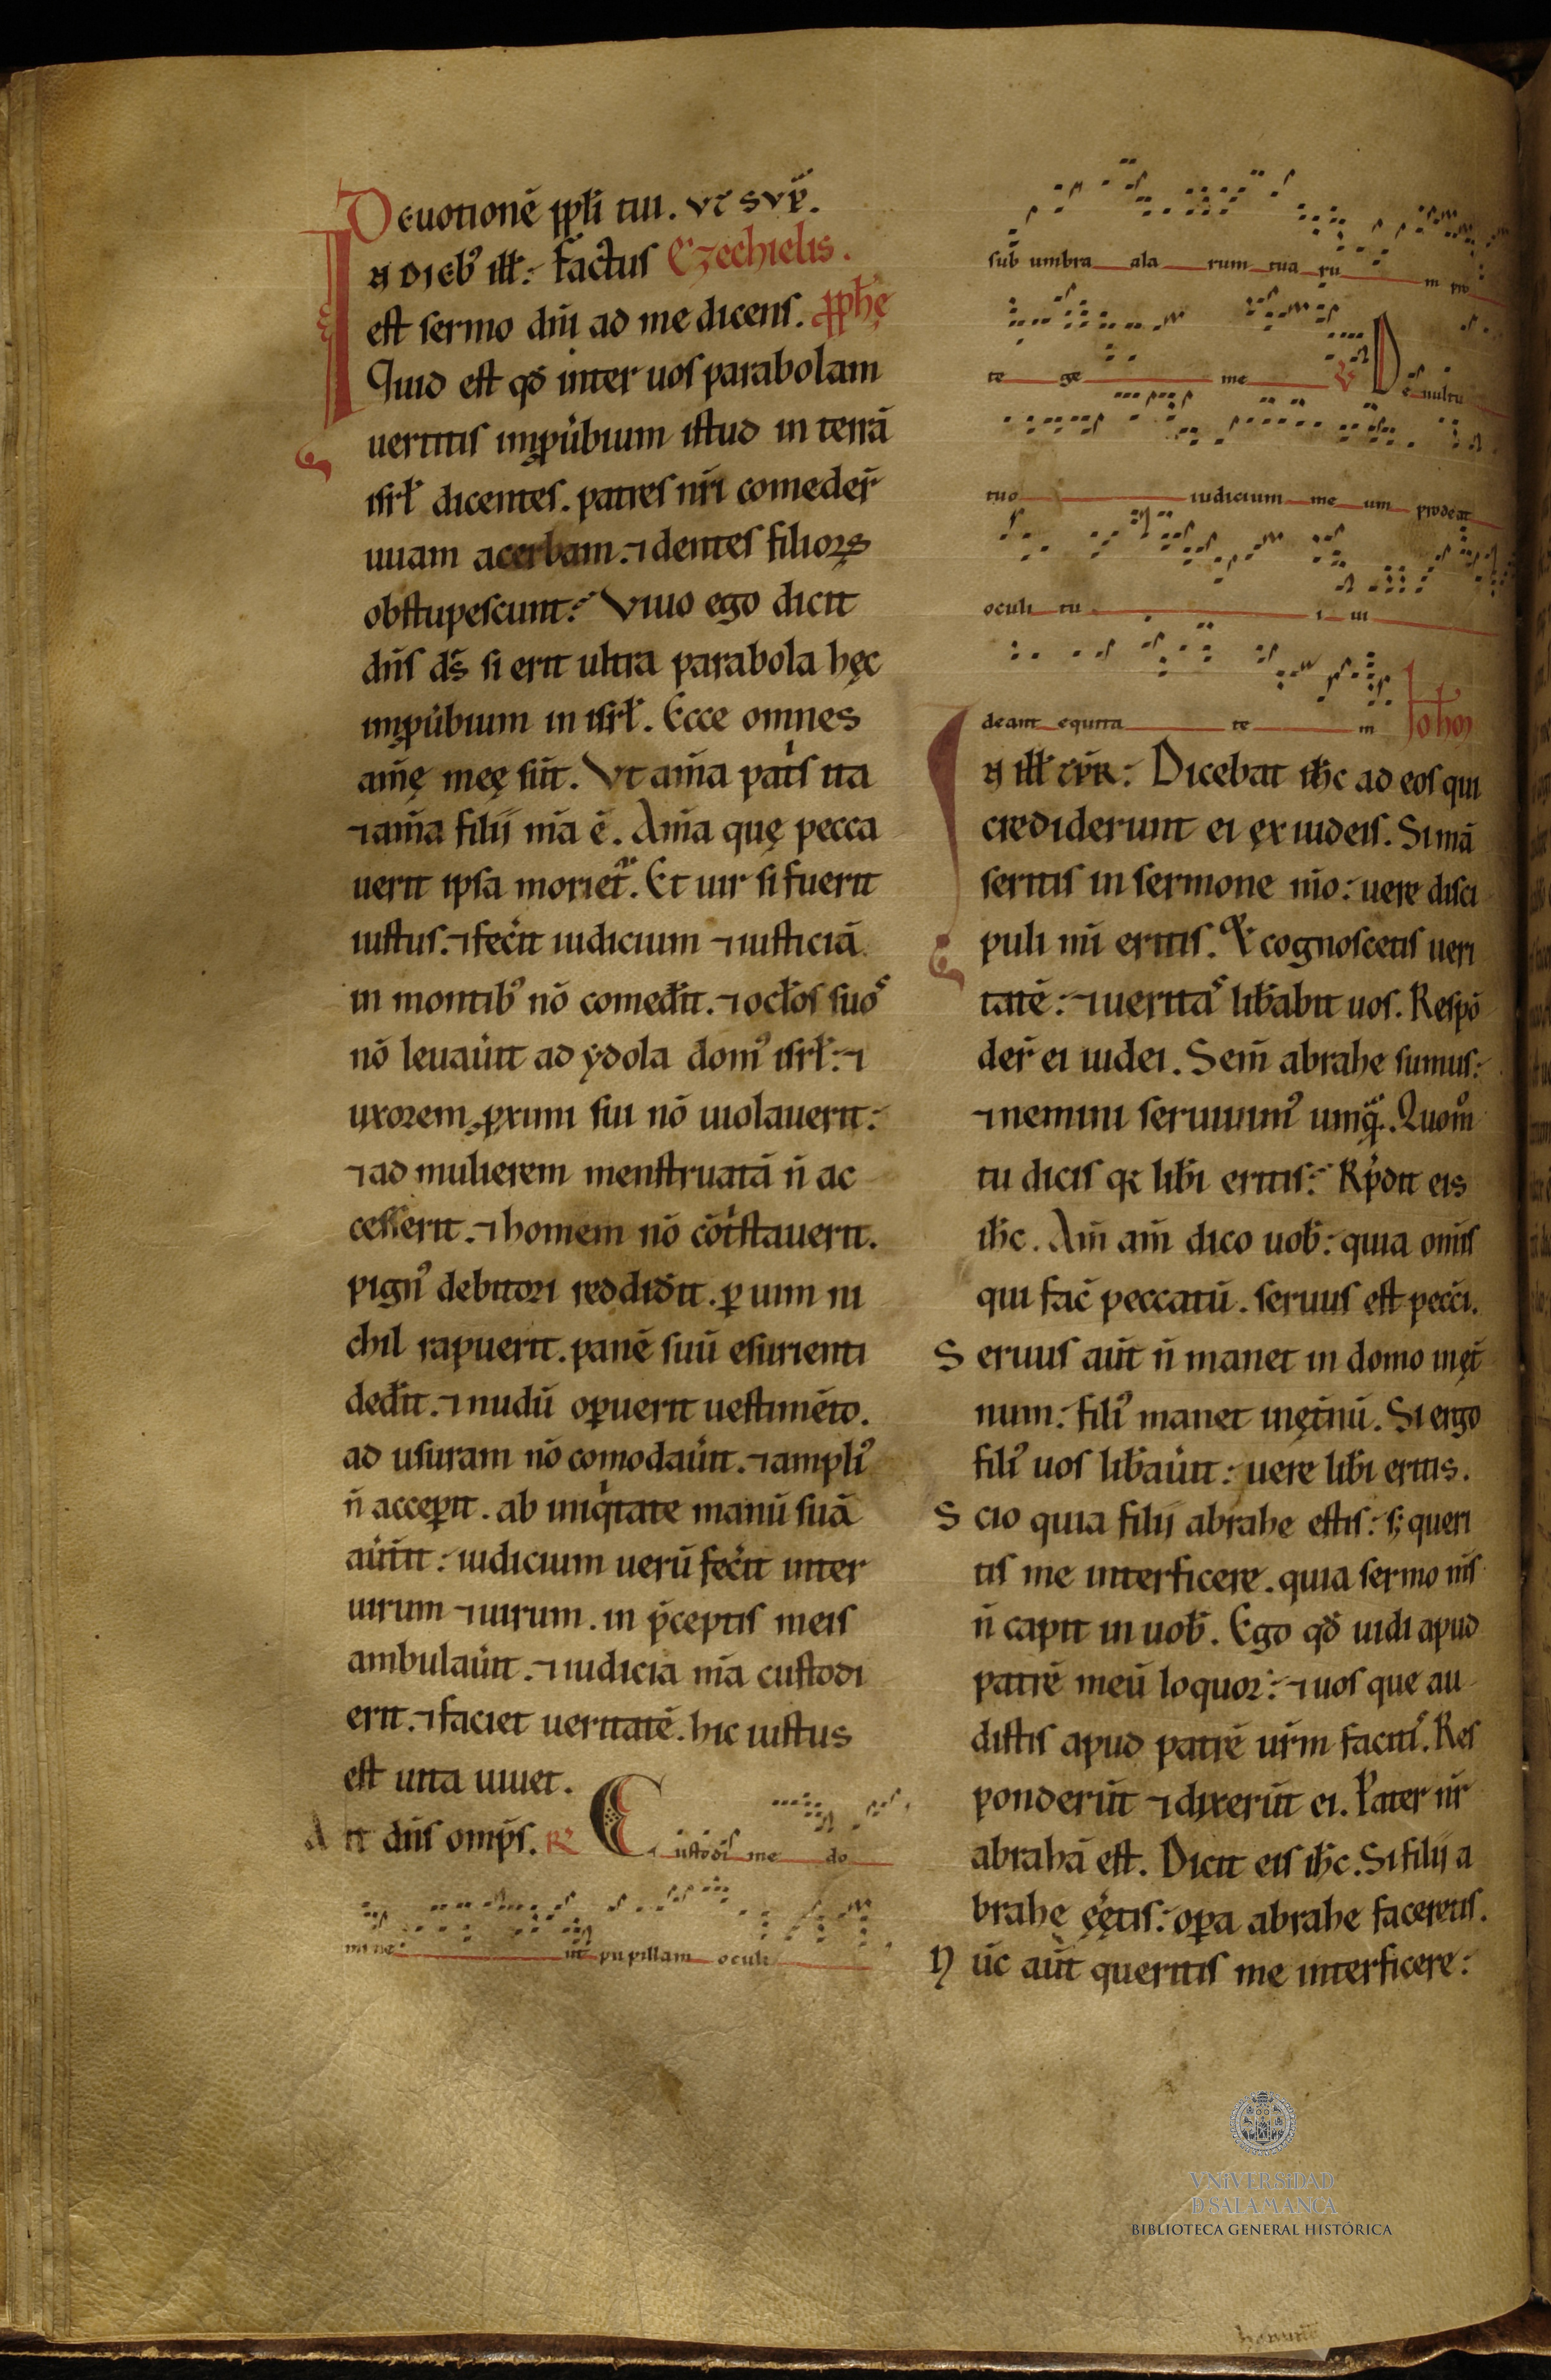 Deuotionē ppłi tui. vt svp̄.
In diebꝰ ill̄. Factus Ezechielis.
est sermo dn̄i ad me dicens. ꝓphę
Quid est qđ inter uos parabolam
uertitis inꝓúbium istud in terrā
isrł dicentes. patres nr̄i comeder̄
uuam acerbam. ⁊ dentes filioꝝ
obstupescunt. Viuo ego dicit
dn̄s ds̄ si erit ultra parabola hęc
inꝓúbium in isrł. Ecce omnes
am̄ę meę sūt. Vt am̄a patⁱs ita
⁊ am̄a filii m̄a ē. Am̄a quę pecca
uerit ipsa moriet᷑. Et uir si fuerit
iustus. ⁊ fec̓it iudicium ⁊ iusticiā
in montibꝰ nō comed̓it. ⁊ ocłos suoˢ
nō leuau̓it ad ydola domꝰ isrł. ⁊
uxorem ꝓximi sui nō uiolauerit.
⁊ ad mulierem menstruatā n̄ ac
cesserit. ⁊ homem nō cōtⁱstauerit.
pignꝰ debitori reddid̓it. ꝑ uim ni
chil rapuerit. panē suū esurienti
ded̓it. ⁊ nudū oꝑuerit uestimēto.
ad usuram nō comodau̓it. ⁊ ampliꝰ
n̄ acceꝑit. ab iniqⁱtate manū suā
au̓tit. iudicium uerū fec̓it inter
uirum ⁊ uirum. in p̄ceptis meis
ambulau̓it. ⁊ iudicia m̄a custodi
erit. ⁊ faciet ueritatē. hic iustus
est uita uiuet.
Ait dn̄s omp̄s. R̷ Custodi me do
mine ut pupillam oculi
sub umbra ala rum tua ru m pro
te ge me V̷ De uultu
tuo iudicium me um prodeat
oculi tu i ui
deant equita te m Ioh̄
In ill̄ tp̄r. Dicebat ih̄c ad eos qui
crediderunt ei ex iudeis. Si mā
seritis in sermone m̄o. uere disci
puli m̄i eritis. Et cognoscetis ueri
tatē. ⁊ ueritaˢ lib̓abit uos. Respō
der̄ ei iudei. Sem̄ abrahe sumus.
⁊ nemini seruiuimꝰ umqᵃ. Quom̊
tu dicis qꝛ lib̓i eritis. Rp̄dit eis
ih̄c. Am̄ am̄ dico uob̄. quia om̄is
qui fac̄ peccatū. seruus est pecc̄i.
Seruus aūt n̄ manet in domo inęt̓
num. filiꝰ manet inęt̓nū. Si ergo
filiꝰ uos lib̓au̓it. uere lib̓i eritis.
Scio quia filii abrahe estis. sꝫ queri
tis me interficere. quia sermo m̄s
n̄ capit in uob̄. Ego qđ uidi apud
patrē meū loquor. ⁊ uos que au
distis apud patrē ur̄m facitiˢ. Res
ponderūt ⁊ dixerūt ei. Pater nr̄
abrahā est. Dicit eis ih̄c. Si filii a
brahe ęętis. oꝑa abrahe faceretis.
Nūc aūt queritis me interficere.
VNiVERSiDAD
D SALAMANCA
BIBLIOTECA GENERAL HISTÓRICA